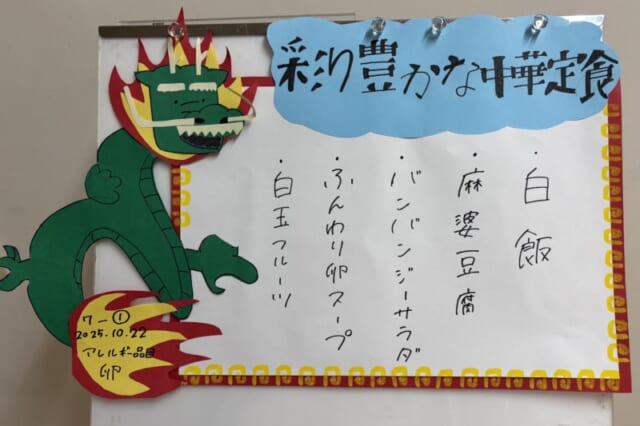 彩り豊かな中華定食
・白飯
・麻婆豆腐
・バンバンジーサラダ
・ふんわり卵スープ
・白玉フルーツ
2025.10.22
アレルギー品目
卵